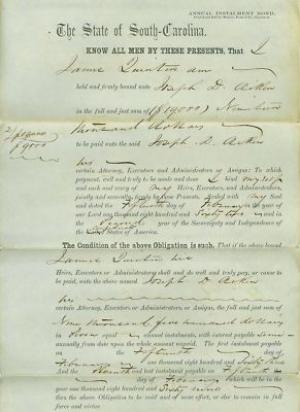 ANNUAL INSTALMENT BOND.
The State of South-Carolina.
KNOW ALL MEN BY THESE PRESENTS, That I
James
am
held and firmly bound unto Joseph D. Aiken
in the full and just sum of ($19000) Nineteen
thousand dollars
2/$19000
$9500
to be paid unto the said Joseph D. Aiken
his
certain Attorney, Executors and Administrators or Assigns: To which
payment, well and truly to be made and done I bind myself
and each and every of my Heirs, Executors, and Administrators,
jointly and severally, firmly by these Presents. Sealed with my Seal
and dated the fifteenth day of February in the year of
our Lord one thousand eight hundred and Sixty two and in
year of the Sovereignty and Independence of
the States of America.
The Condition of the above Obligation is such, That if the above bound
James his
Heirs, Executors or Administrators shall do well and truly pay, or cause to be
paid, unto the above named Joseph D Aiken
his
certain Attorney, Executors, Administrators or Assigns, the full and just sum of
Nine thousand five hundred dollars
in equal annual instalments, with interest payable
annually from date upon the whole amount unpaid. The first instalment payable
on the fifteenth day of
February one thousand eight hundred and Sixty three
And the instalment payable on fifteenth
day of February which will be in the
year one thousand eight hundred and Sixty
then the above Obligation to be void and of none effort, or else to remain in full
force and virtue